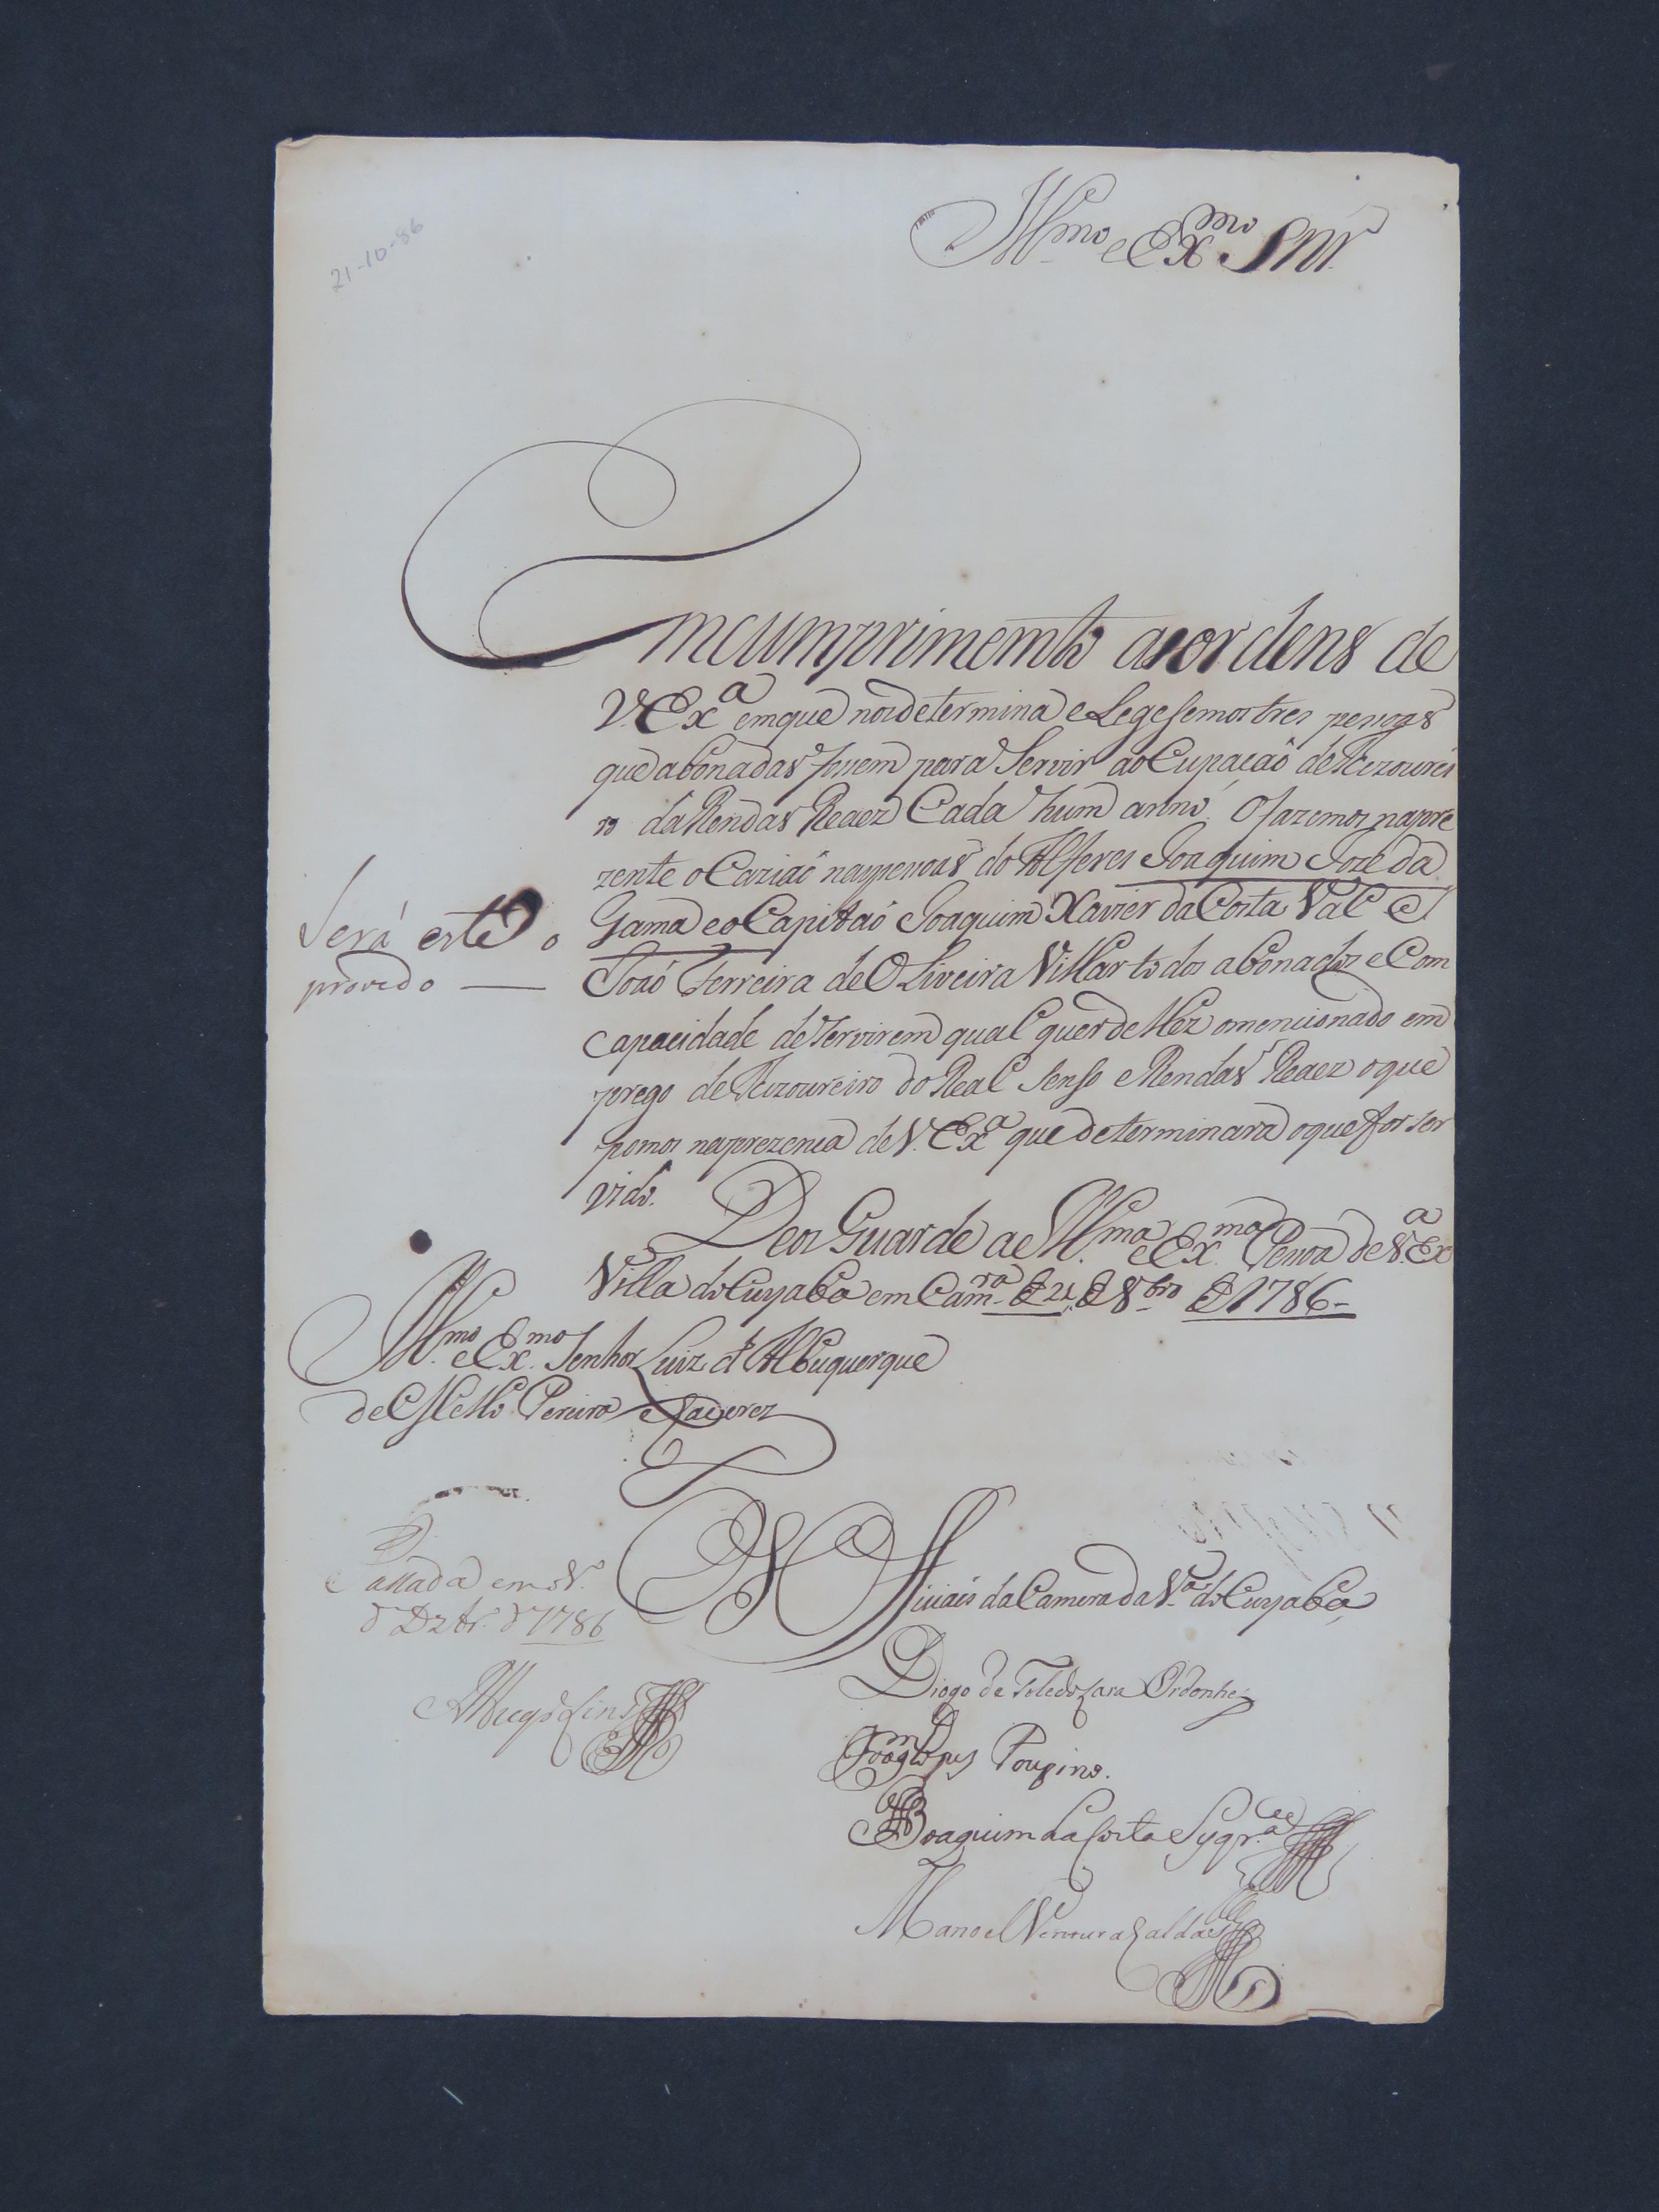 21-10-86
Ill.mo e Ex.mo Snr.
Em cumprimento as ordens de
V. Ex.a em que nos determina e Legesemos tres pessoas
que abonadas fossem para Servir a oCupação de Tezourei
ro da Rendas Reaez Cada hum anno, O fazemos na pre
zente oCazião nas pessoas do Alferes Joaquim Joze da
Gama e o Capitaó Joaquim Xavier da Costa Val e
Será este o
provido —
Joaó Ferreira de OLiveira Villar todos abonados e Com
capacidade de servirem qual quer delles o mencionado em
prego de Tezoureiro do Real Senso e Rendas Reaez o que
pomos na prezença de V. Ex.a que determinara o que for ser
vido.
Deos Guarde a Ill.ma e Ex.ma Pessoa de V. Ex.a
Villa do Cuyaba em Cam.ra de 21 de 8.bro de 1786-
Ill.mo e Ex.mo Senhor Luiz de Albuquerque
de Mello Pereira e Caçerez
Passada em
de Dzbr.o de 1786
Officiais da Camera da V.a do Cuyaba,
Diogo de Toledo Lara Ordonhez
Joaq.m Lopes Poupino.
Joaquim da Costa Syqr.a
Manoel Ventura Caldas